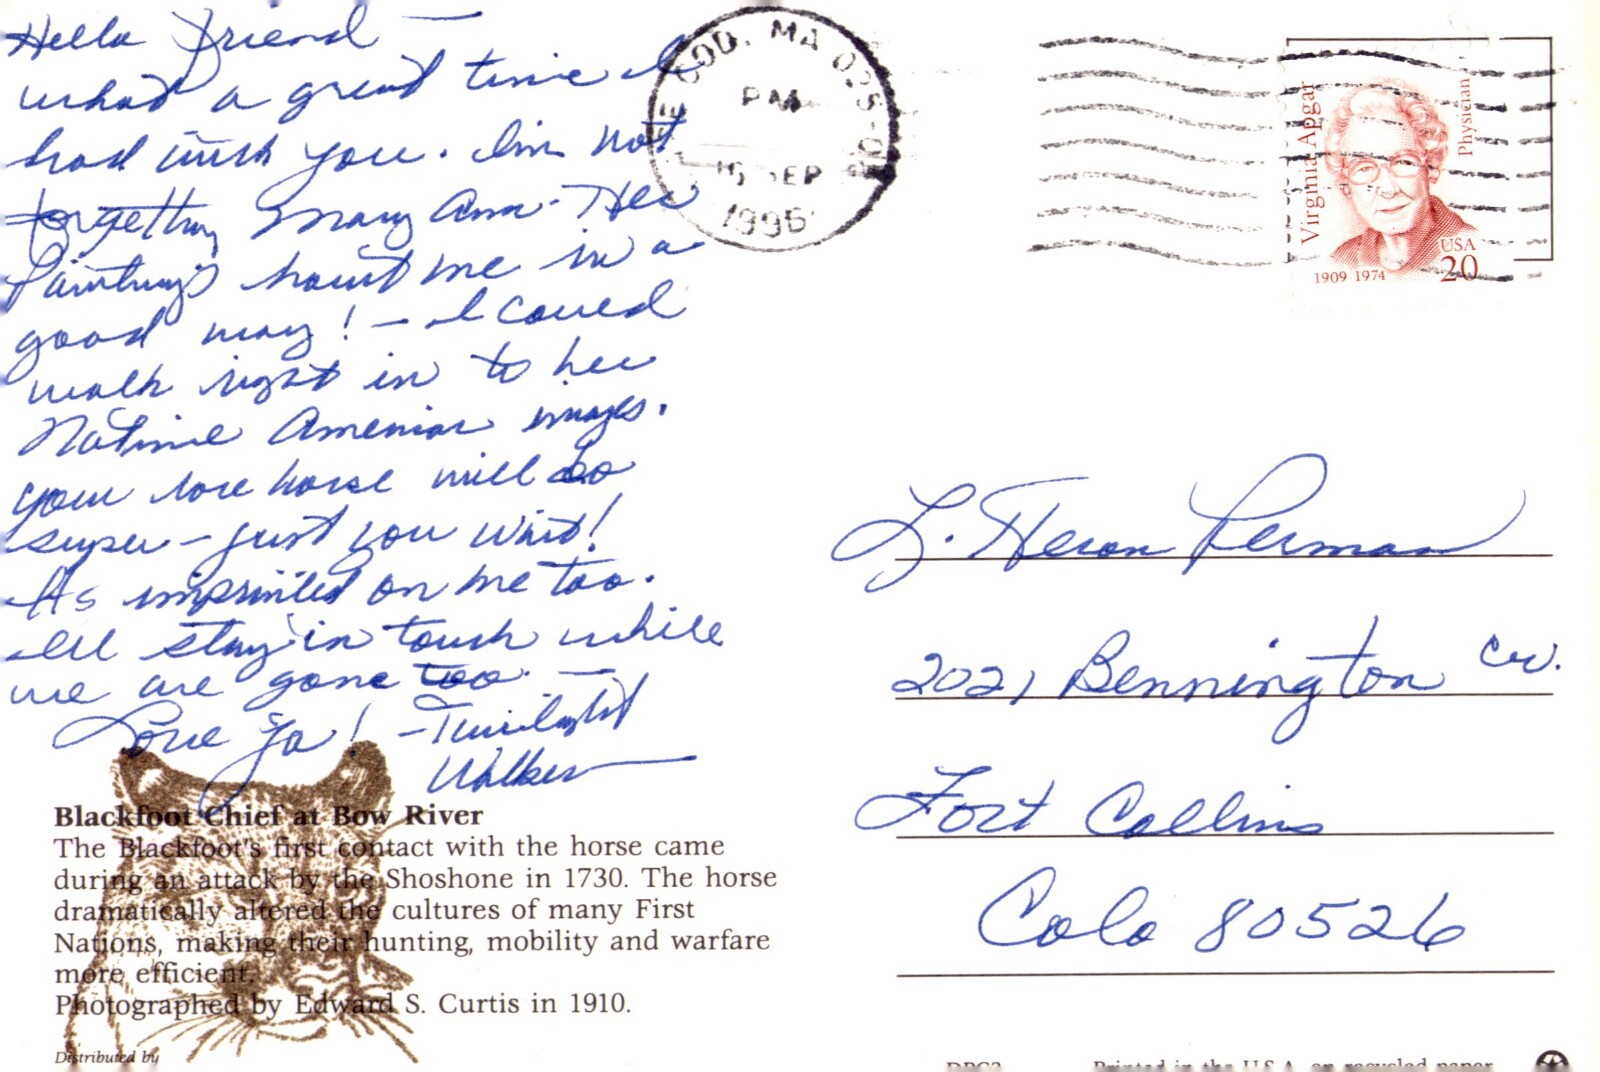 Hello Friend —
what a great time I
had with you. I'm not
forgetting Mary Ann. Her
Paintings haunt me in a
good way! - I could
walk right in to her
Native American images.
your horse will do
super - just you wait!
Its imprinted on me too.
I'll stay in touch while
we are gone too. —
Love Ya! - Twilight
Walker
COD, MA 025
PM
SEP
1996
Virginia Apgar
Physician
1909 1974
USA
20
L. Heron Perman
2021 Bennington Cir.
Fort Collins
Colo 80526
Blackfoot Chief at Bow River
The Blackfoot's first contact with the horse came
during an attack by the Shoshone in 1730. The horse
dramatically altered the cultures of many First
Nations, making their hunting, mobility and warfare
more efficient.
Photographed by Edward S. Curtis in 1910.
Distributed by
Printed in the U.S.A. on recycled paper